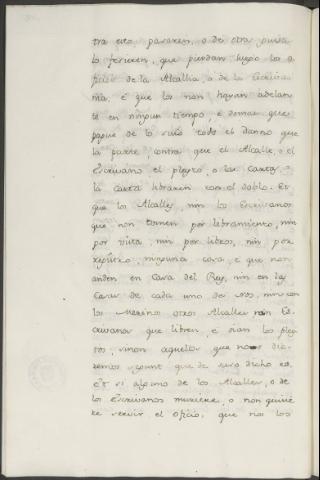 tra esto pasaren, o de otra guisa
lo ficieren, que pierdan luego los o-
ficios de la Alcallia, o de la Escriva-
nia, é que los non hayan adelan
te en ningun tiempo é demas que
pague de lo suio todo el danno que
la parte, contra que el Alcalle, o el
Escrivano el pleyto, o las cartas, o
la carta libraren con el doblo. Et
que los Alcalles, nin los Escrivanos
que non tomen por libramiento, nin
por vista, nin por libros, nin por
registro, ninguna cosa, é que non
anden en Casa del Rey, nin en las
Casas de cada uno de nos, nin con
los Merinos otros Alcalles nin Es-
crivanos que libren, é oian los pley
tos, sinon aquellos que nos di-
remos, segunt que de suso dicho es.
Et si alguno de los Alcalles, o de
los Escrivanos muriere, o non quisie
re servir el oficio, que nos los